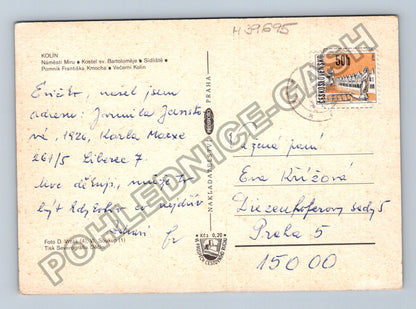 H 39695
KOLÍN
Náměstí Míru • Kostel sv. Bartoloměje • Sídliště •
Pomník Františka Kmocha • Večerní Kolín
Evičko, našel jsem
adresu: Jarmila Janstová
vá, 1926, Karla Marxe
261/5 Liberec 7.
Moc děkuji, můžeš to
být kdykoliv co nejdřív
Foto D.
Tisk Severografia Děčín
NAKLADATELSTVÍ
PRAHA
Kčs 0,20
50h
ČESKOSLOVENSKO
Vážená paní
Eva Křížová
Diezenhoferovy sady 5
Praha 5
150 00
POHLEDNICE-GASH